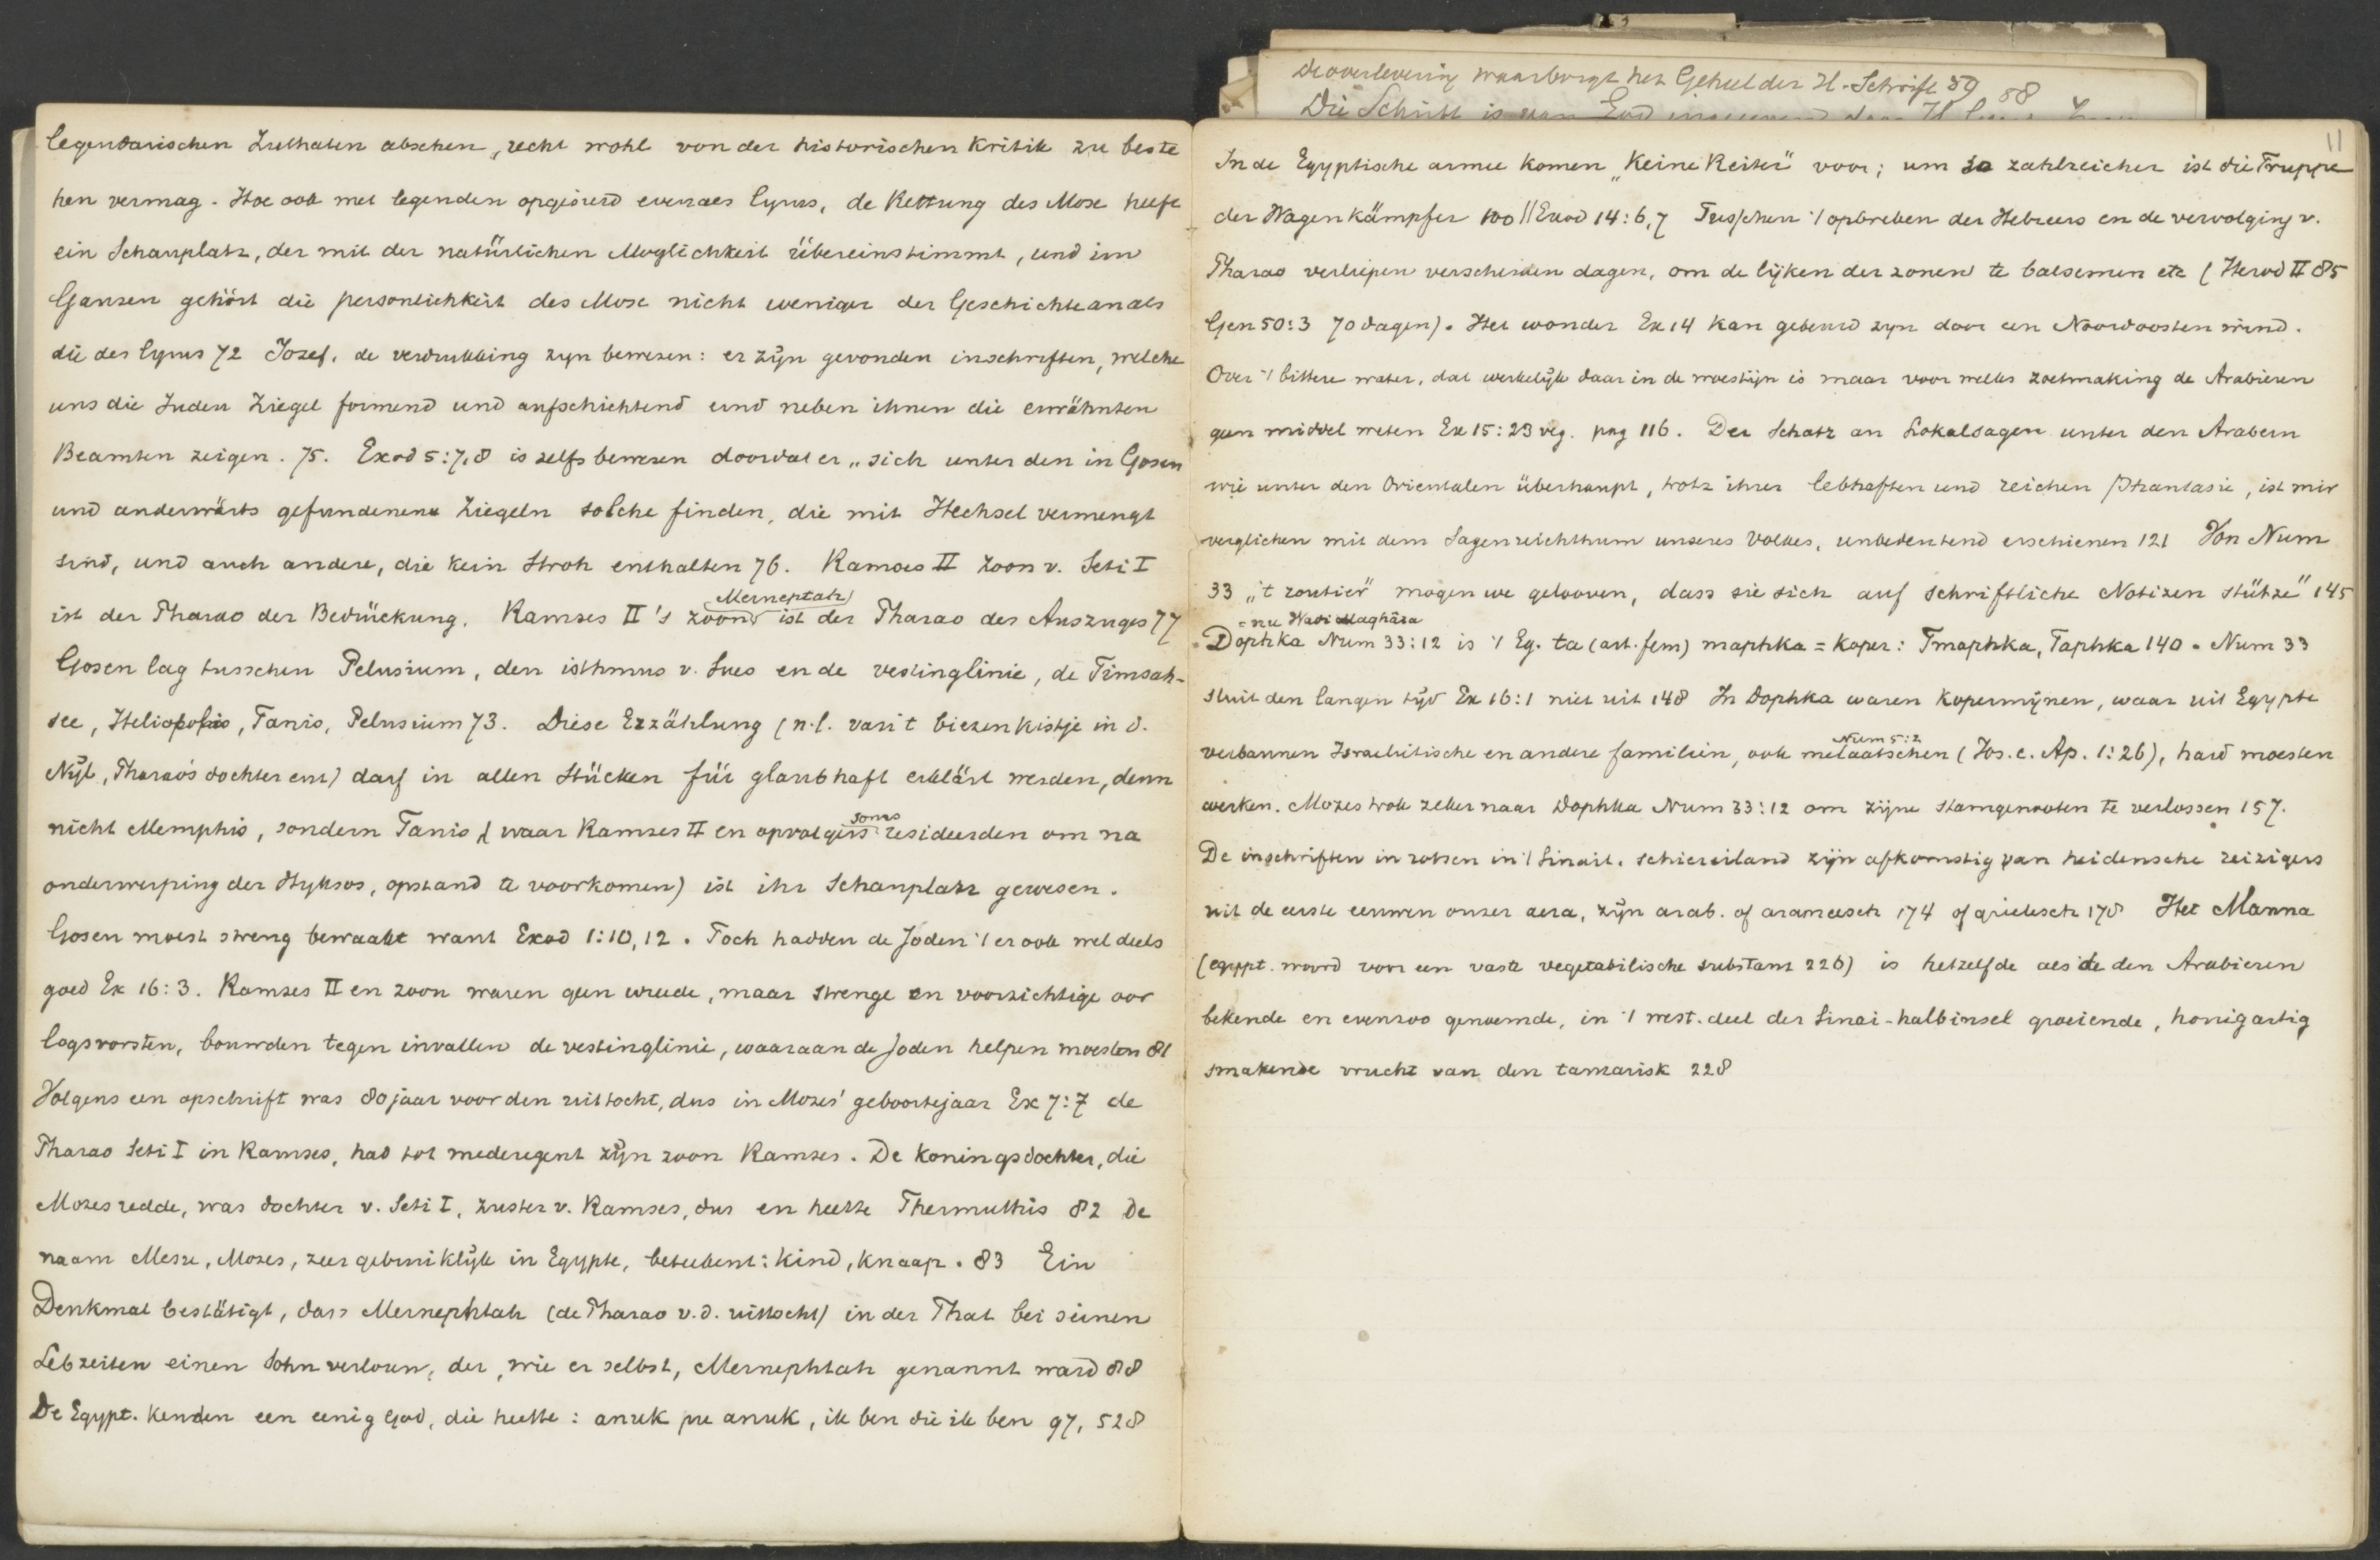 legendarischen Zuthaten absehen, recht wohl von der historischen Kritik zu beste
hen vermag. Hoe ook met legenden opgesierd evenals Cyrus, de Rettung des Mose heeft
ein Schauplatz, der mit der natürlichen Moglichkeit übereinstimmt, und im
Ganzen gehört die personlichkeit des Mose nicht weniger der Geschichte an als
die des Cyrus 72 Jozef, de verdrukking zyn bewezen: er zijn gevonden inschriften, welche
uns die Juden Ziegel formend und aufschichtend und neben ihnen die erwähnten
Beamten zeigen. 75. Exod 5:7,8 is zelfs bewezen doordat er „sich unter den in Gosen
und anderwärts gefundenen Ziegeln solche finden, die mit Hechsel vermengt
sind, und auch andere, die kein Stroh enthalten 76. Ramses II zoon v. Seti I
ist der Pharao der Bedrückung. Ramses II's zoon Merneptah ist der Pharao des Auszuges 77
Gosen lag tusschen Pelusium, den isthmus v. Sues en de vestinglinie, de Timsah-
see, Heliopolis, Tanis, Pelusium 73. Diese Erzählung (n.l. van 't biezen kistje in d.
Nijl, Pharao's dochter enz) darf in allen Stücken für glaubhaft erklärt werden, denn
nicht Memphis, sondern Tanis (waar Ramses II en opvolgers soms resideerden om na
onderwerping der Hyksos, opstand te voorkomen) ist ihr Schauplatz gewesen.
Gosen moest streng bewaakt want Exod 1:10,12. Toch hadden de Joden 't er ook wel deels
goed Ex 16:3. Ramses II en zoon waren geen wreede, maar strenge en voorzichtige oor
logsvorsten, bouwden tegen invallen de vestinglinie, waaraan de Joden helpen moesten 81
Volgens een opschrift was 80 jaar voor den uittocht, dus in Mozes' geboortejaar Ex 7:7 de
Pharao Seti I in Ramses, had tot mederegent zijn zoon Ramses. De Koningsdochter, die
Mozes redde, was dochter v. Seti I, zuster v. Ramses, dus en heette Thermuthis 82 De
naam Mesu, Mozes, zeer gebruiklijk in Egypte, beteekent: Kind, Knaap. 83 Ein
Denkmal bestätigt, dass Mernephtah (de Pharao v.d. uittocht) in der That bei seinen
Lebzeiten einen Sohn verloren, der, wie er selbst, Mernephtah genannt ward 88
De Egypt. kenden een eenig God, die heette: anuk pu anuk, ik ben die ik ben 97, 528
De overlevering waarborgt het Geheel der H. Schrift 59 58
Die Schrift is van God
11
In de Egyptische armee komen „Keine Reiter" voor; um so zahlreicher ist die Truppe
der Wagenkämpfer 100 || Exod 14:6,7 Tusschen 't opbreken der Hebreers en de vervolging v.
Pharao verliepen verscheiden dagen, om de lijken der zonen te balsemen etc (Herod II 85
Gen 50:3 70 dagen). Het wonder Ex 14 kan gebeurd zyn door een Noordoosten wind.
Over 't bittere water, dat werkelijk daar in de woestijn is maar voor welks zoetmaking de Arabieren
geen middel weten Ex 15:23 vlg. pag 116. Der Schatz an Lokalsagen unter den Arabern
wie unter den Orientalen überhaupt, trotz ihrer lebhaften und reichen Phantasie, ist mir
verglichen mit dem Sagenreichthum unseres Volkes, unbedeutend erschienen 121 Von Num
33 „'t zoutier" mogen we gelooven, dass sie sich auf schriftliche Notizen stütze" 145
= nu Wadi Maghâra
Dophka Num 33:12 is 't Eg. ta (art. fem) maphka = Koper: Tmaphka, Taphka 140. Num 33
sluit den langen tijd Ex 16:1 niet uit 148 In Dophka waren kopermijnen, waar uit Egypte
verbannen Israelitische en andere familien, ook melaatschen Num 5:2 (Jos. c. Ap. 1:26), hard moesten
werken. Mozes trok zeker naar Dophka Num 33:12 om zijne stamgenooten te verlossen 157.
De inschriften in rotsen in 't Sinait. schiereiland zijn afkomstig van heidensche reizigers
uit de eerste eeuwen onzer aera, zijn arab. of arameesch 174 of grieksch 178 Het Manna
(egypt. woord voor een vaste vegetabilische substans 226) is hetzelfde als de den Arabieren
bekende en evenzoo genoemde, in 't west. deel der Sinai-halbinsel groeiende, honigartig
smakende vrucht van den tamarisk 228